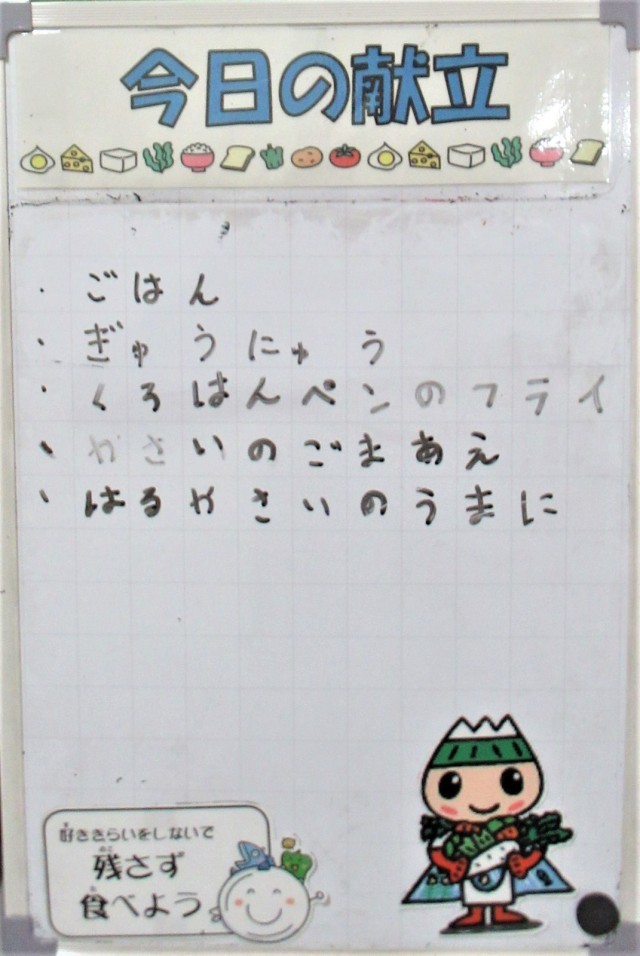 今日の献立
・ごはん
・ぎゅうにゅう
・くろはんペンのフライ
・やさいのごまあえ
・はるやさいのうまに
好ききらいをしないで
残さず
食べよう